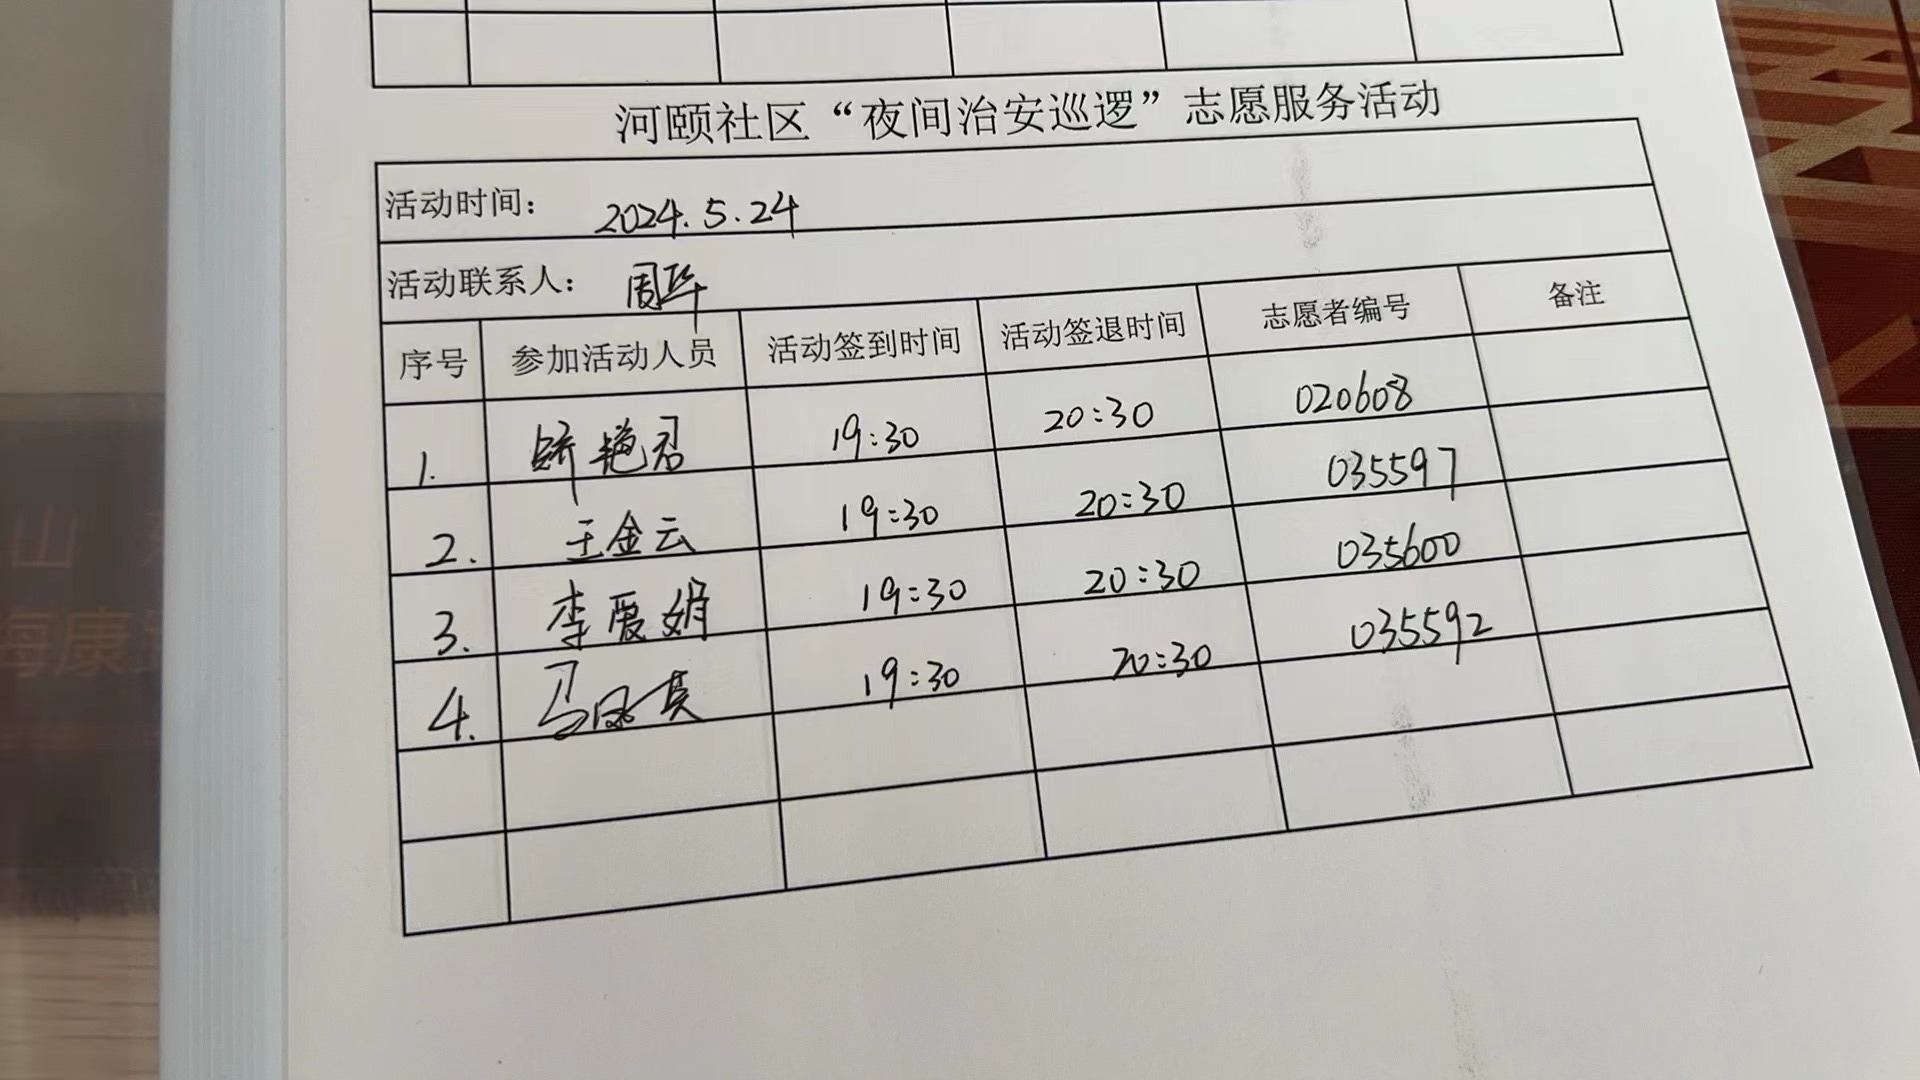 河颐社区“夜间治安巡逻”志愿服务活动
活动时间： 2024.5.24
活动联系人： 周华
序号 参加活动人员 活动签到时间 活动签退时间 志愿者编号 备注
1. 艳君 19:30 20:30 020608
2. 王金云 19:30 20:30 035597
3. 李爱娟 19:30 20:30 035600
4. 马凤英 19:30 20:30 035592
山
海康